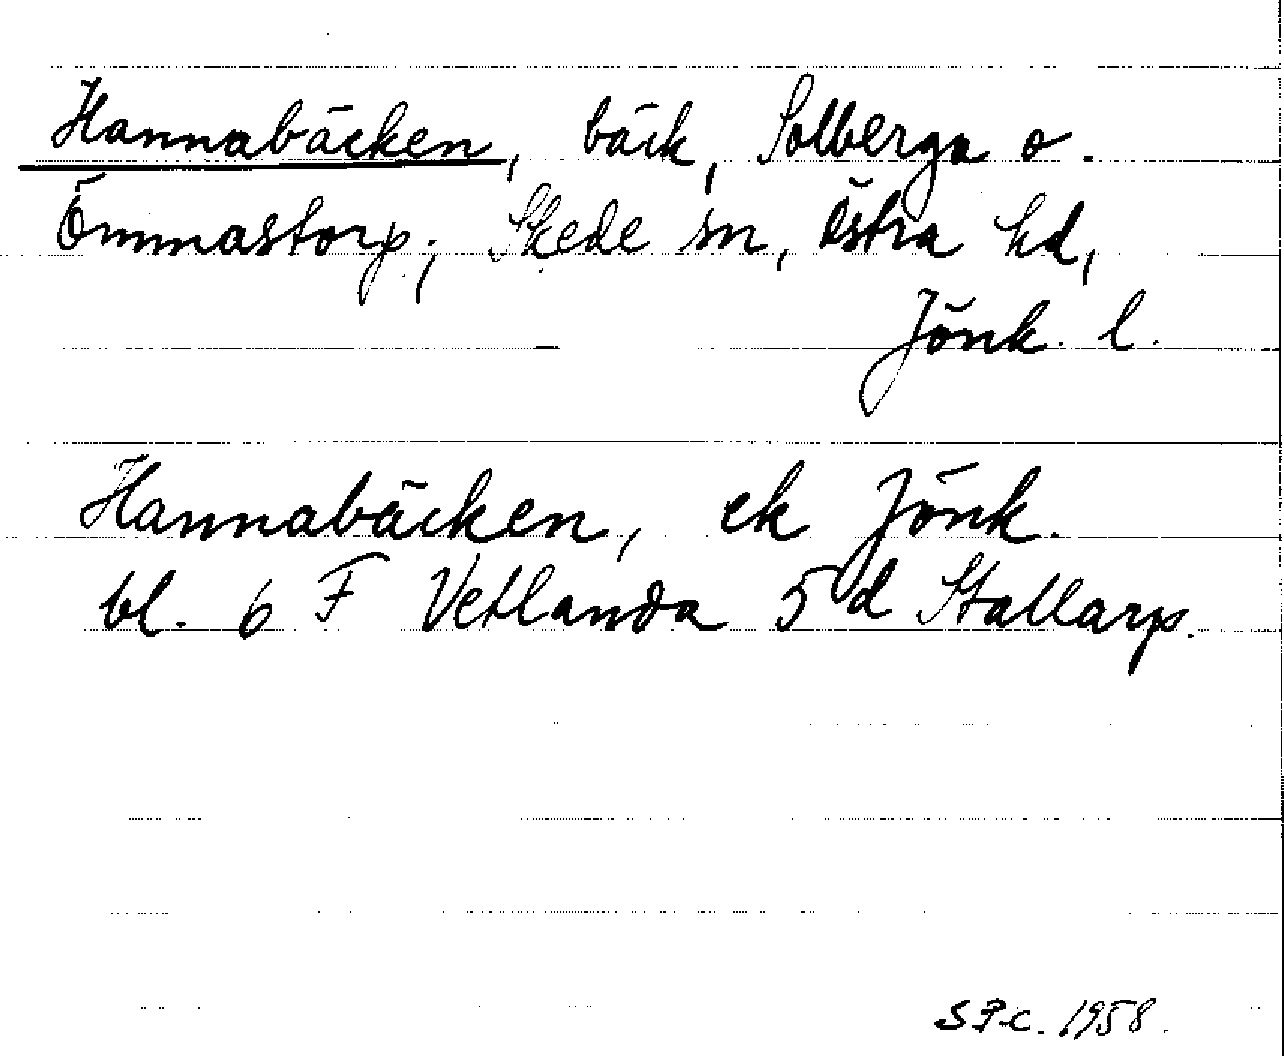 Hannabäcken, bäck, Solberga o.
Ömmastorp, Skede sn, Östra hd,
Jönk. l.
Hannabäcken, ek Jönk.
bl. 6 F Vetlanda 5 d Stallarp.
1958.